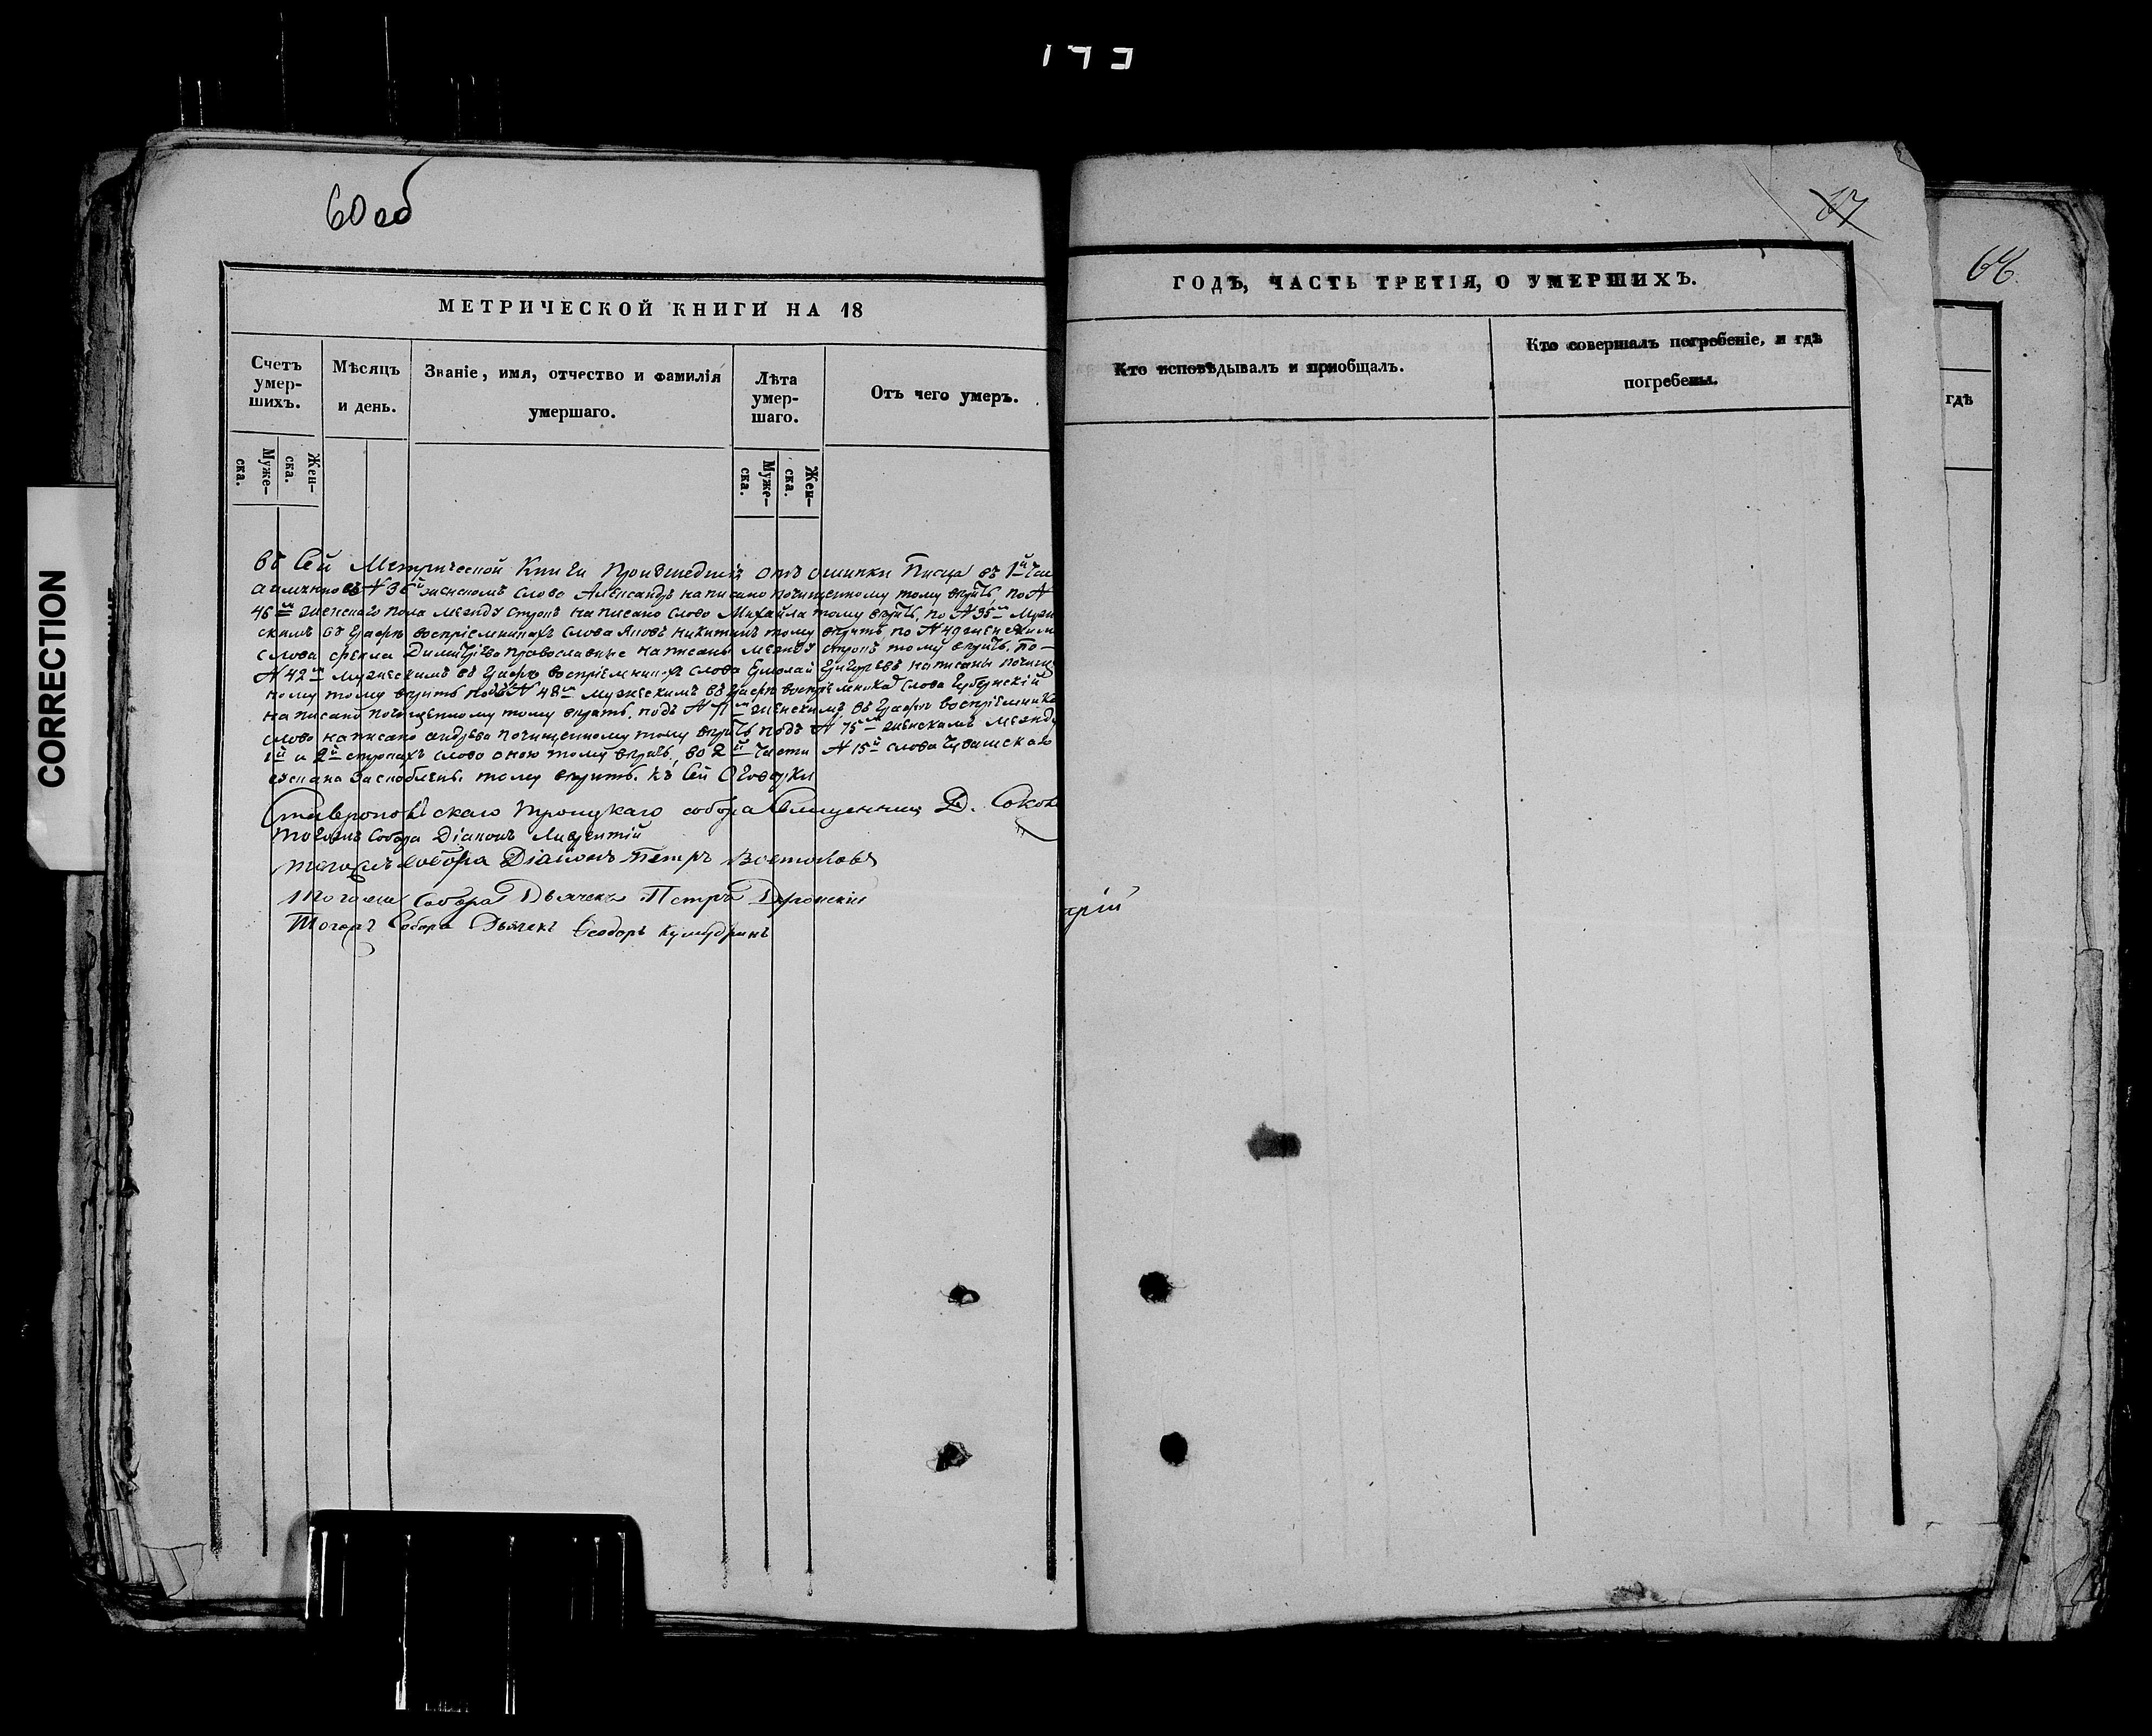 60 об
67
66
CORRECTION
МЕТРИЧЕСКОЙ КНИГИ НА 18
ГОДЪ, ЧАСТЬ ТРЕТІЯ, О УМЕРШИХЪ.
Счетъ умер-шихъ.
Мѣсяцъ и день.
Званіе, имя, отчество и фамилія умершаго.
Лѣта умер-шаго.
Отъ чего умеръ.
Кто исповѣдывалъ и пріобщалъ.
Кто совершалъ погребеніе, и гдѣ погребены.
гдѣ
Муже-ска.
Жен-ска.
Муже-ска.
Жен-ска.
въ Сей Метрической Книги Произшедшія отъ ошипки Писца въ 1й
а именно N 36 женскомъ слово Александръ написано почищенному тому вѣрить, по N
46м женскаго пола между строкъ написано слово Михайла тому вѣрить, по N 35м
скимъ въ Графѣ воспріемникахъ слова Яковъ Никитинъ тому вѣрить, по N 49
слова Димитріева православные написаны между строкъ тому вѣрить. По
N 42м мужескимъ въ Графѣ воспріемника слова Ермолай Григорьевъ написаны
ному тому вѣрить подъ N 48м мужескимъ въ Графѣ воспріемника слова Губернскій
написано почищенному тому вѣрить. подъ N 71м женскимъ въ Графѣ воспріемника
слово написано Андрева почищенному тому вѣрить подъ N 75м женскимъ между
1й и 2й строкахъ слово оною тому вѣрить, во 2й части N 15й слова Чувашскаго
тому вѣрить. къ Сей Оговорки
Ставропольскаго Троицкаго собора Священникъ Д.
Тогожъ Собора Діаконъ
тогожъ собора Діаконъ Петръ Востоковъ
Тогожъ Собора Дьячекъ Петръ
Тогожъ Собора Дьячекъ Ѳеодоръ